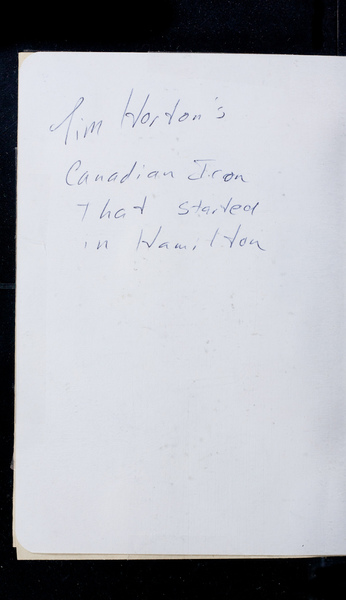 Tim Horton's
Canadian Icon
That started
in Hamilton